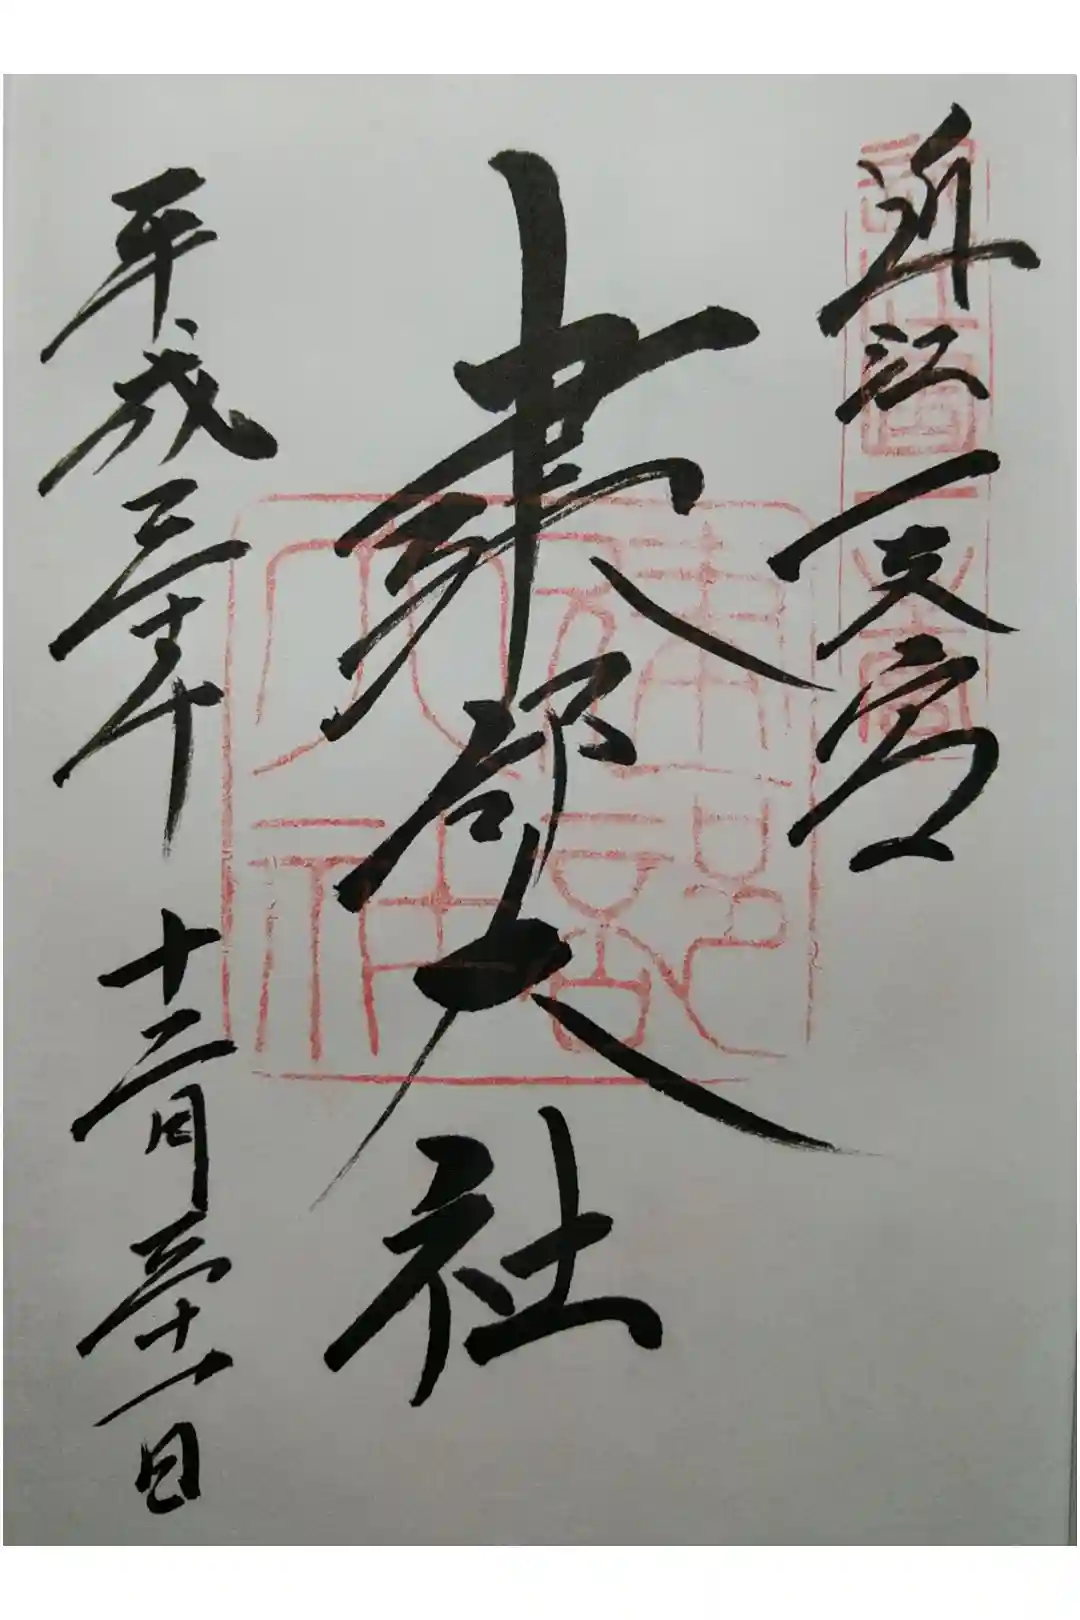 近江一之宮
近江国一之宮
建部大社
平成三十年 十二月三十一日